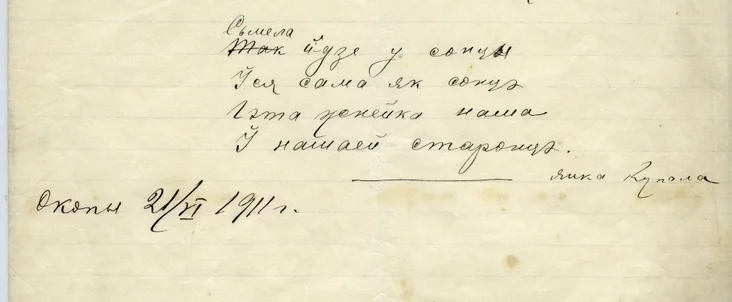 Сьмела
Так йдзе у сонцы
Ўся сама як сонцэ
Гэта жнейка наша
Ў нашаей старонцэ.
Янка Купала
Окопы 21/VI 1911 г.